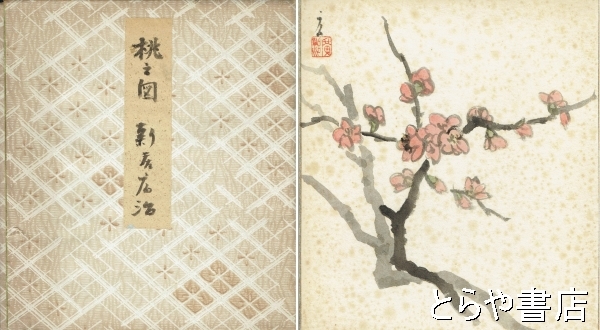 桃之図 新居広治
とらや書店